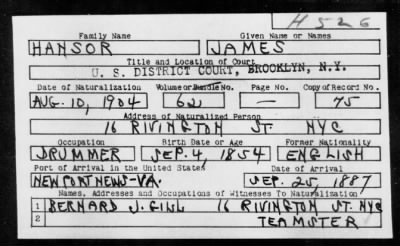 H 526
Family Name Given Name or Names
HANSOR JAMES
Title and Location of Court
U. S. DISTRICT COURT, BROOKLYN, N.Y.
Date of Naturalization Volume or Bundle No. Page No. Copy of Record No.
AUG. 10, 1904 62 — 75
Address of Naturalized Person
16 RIVINGTON ST NYC
Occupation Birth Date or Age Former Nationality
DRUMMER SEP. 4, 1854 ENGLISH
Port of Arrival in the United States Date of Arrival
NEWPORT NEWS-VA. SEP. 25, 1887
Names, Addresses and Occupations of Witnesses To Naturalization
1 BERNARD J. GILL 16 RIVINGTON ST. NYC
2 TEAMSTER